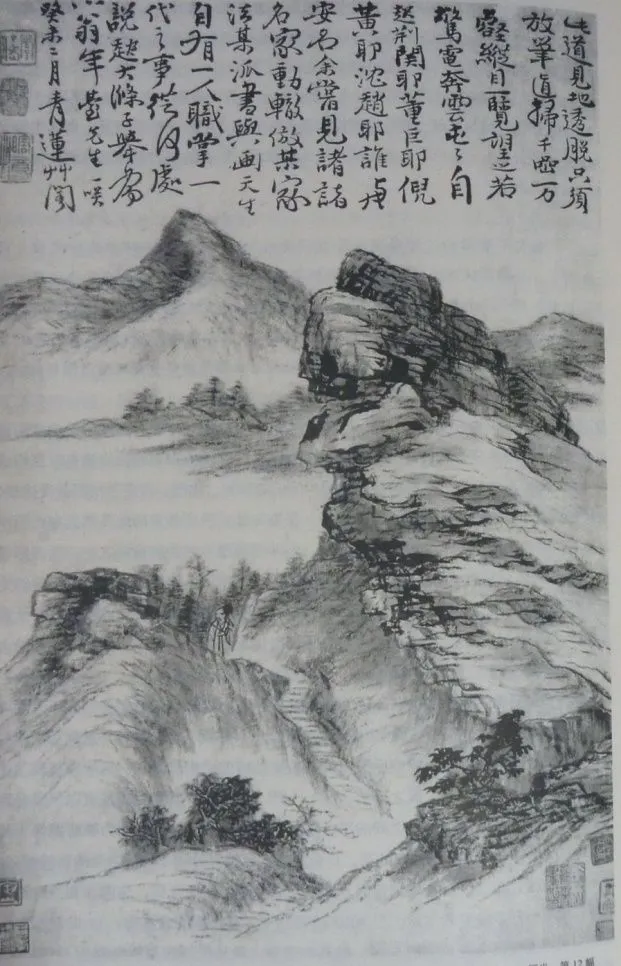 此道見地透脫只須
放筆直掃千巖万
壑縱目一覽望之若
驚電奔雲屯屯自
起荆関耶董巨耶倪
黄耶沈趙耶誰与
安名余嘗見諸諸
名家動輒倣某家
法某派書與画天生
自有一人職掌一
代之事從何處
說起大滌子舉為
翁年臺先生一咲
癸未二月青蓮艸閣
第12幅